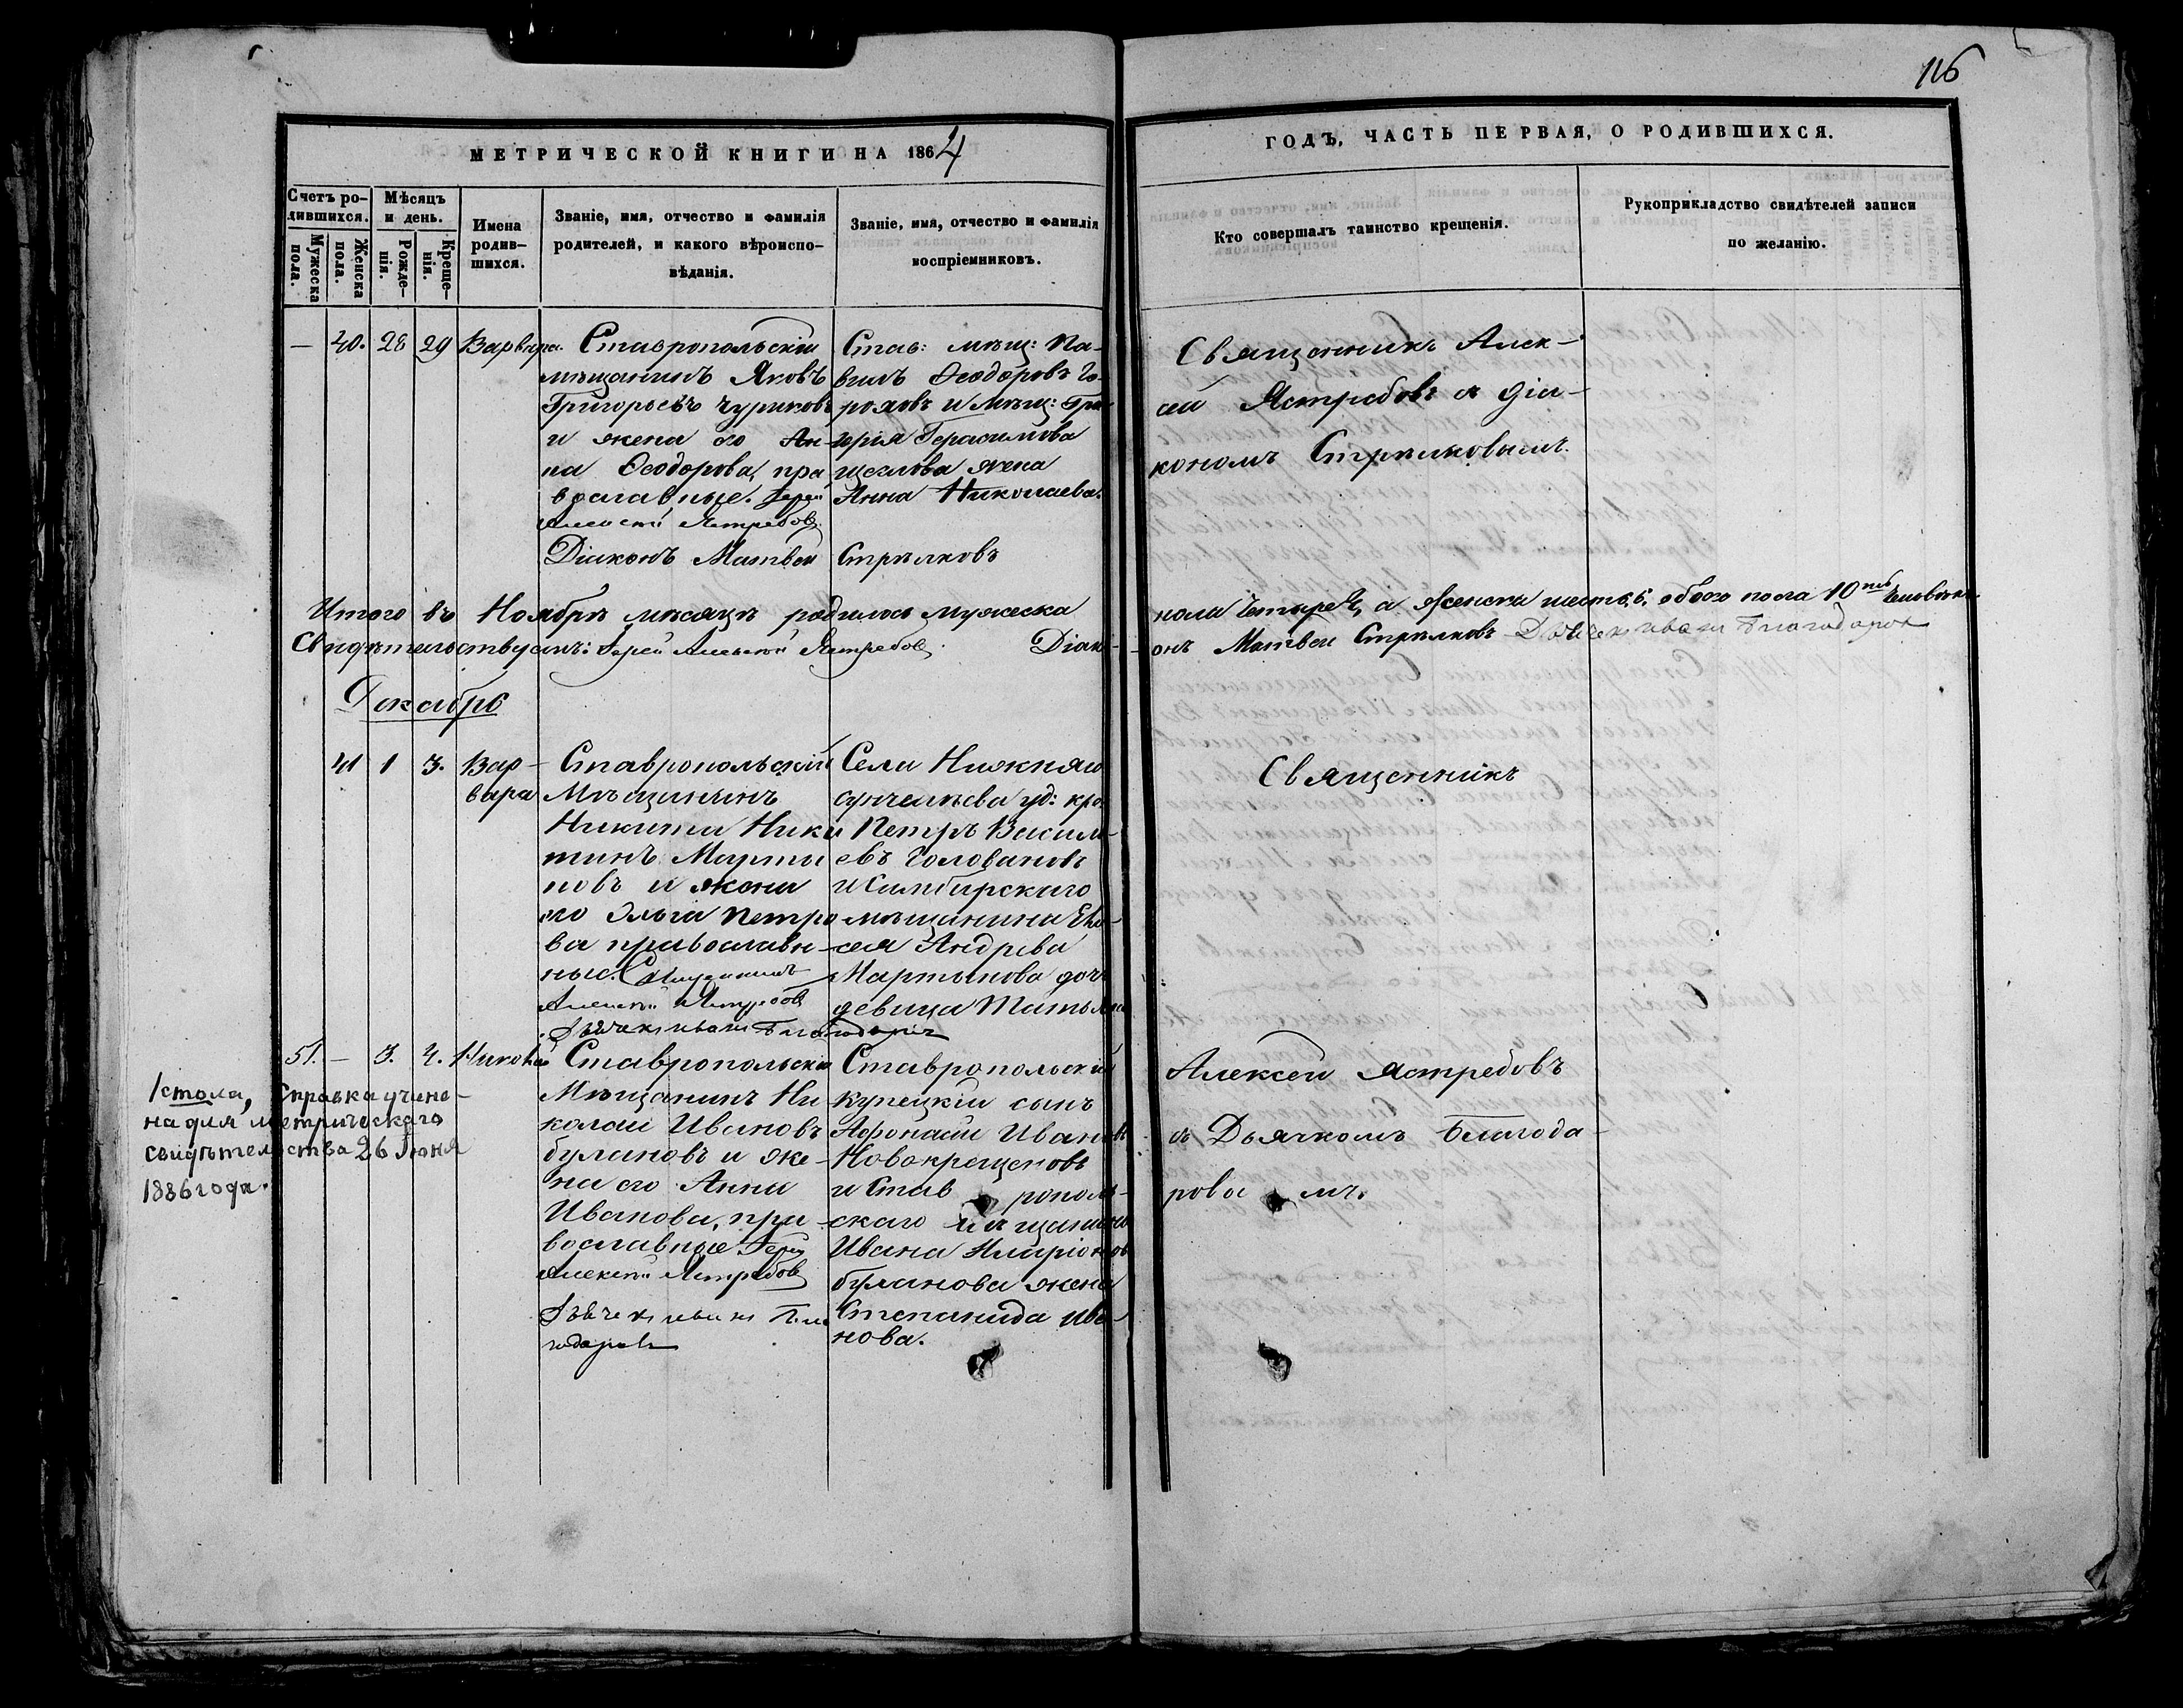 116
МЕТРИЧЕСКОЙ КНИГИ НА 1864
ГОДЪ, ЧАСТЬ ПЕРВАЯ, О РОДИВШИХСЯ.
Счетъ ро-
дившихся.
Мужеска
пола.
Женска
пола.
Мѣсяцъ
и день.
Рожде-
нія.
Креще-
нія.
Имена
родив-
шихся.
Званіе, имя, отчество и фамилія
родителей, и какого вѣроиспо-
вѣданія.
Званіе, имя, отчество и фамилія
воспріемниковъ.
Кто совершалъ таинство крещенія.
Рукоприкладство свидѣтелей записи
по желанію.
— 40. 28 29 Варвара.
Ставропольскій
мѣщанинъ Яковъ
Григорьевъ Чуриковъ
и жена его Ан-
на Ѳеодорова, пра
вославные. Іерей
Алексѣй Ястребовъ
Діаконъ Матвей
Став: мѣщ: Па-
велъ Ѳеодоровъ Го-
роховъ и мѣщ: Гри
горія Герасимова
Щеглова жена
Анна Николаева.
Стрѣлковъ
Священникъ Алек-
сей Ястребовъ съ діа-
кономъ Стрѣлковымъ.
Итого въ Ноябрѣ мѣсяцѣ родилось мужеска
пола четыре 4, а женска шесть 6, обоего пола 10ть человѣкъ
Свидѣтельствуемъ: Іерей Алексѣй Ястребовъ. Діак-
онъ Матвей Стрѣлковъ Дьячекъ Иванъ Благодаровъ
Декабрь
41 1 3. Вар-
вара
Ставропольскій
Мѣщанинъ
Никита Ники
тинъ Марты
новъ и жена
его Ольга Петро
ва православн-
ные. Священникъ
Алексѣй Ястребовъ
Дьячекъ Иванъ Благодаровъ
Села Нижняго
Санчелѣева уд: кре
Петръ Василь-
евъ Головановъ
и Симбирскаго
мѣщанина Ели-
сея Андрева
Мартынова доч
девица Татьяна
Священникъ
51. — 3. 4. Николай
Ставропольскій
Мѣщанинъ Ни
колай Ивановъ
Булановъ и же-
на его Анна
Иванова, пра-
вославные Іерей
Алексѣй Ястребовъ
Дьячекъ Иванъ Бла
годаровъ
Ставропольскій
купецкій сынъ
Афонасій Ивановъ
Новокрещеновъ
и Став рополь-
скаго мѣщанина
Ивана Иларіонов
Буланова жена
Степанида Ива-
нова.
Алексей Ястребовъ
съ Дьячкомъ Благода-
ровы мъ.
1 стола, Справка учине-
на для метрическаго
свидѣтельства 26 Іюня
1886 года.